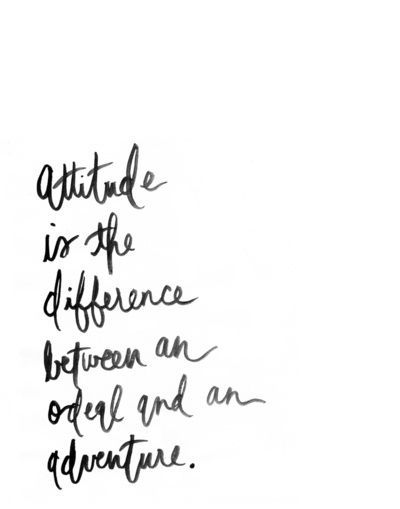 Attitude
is the
difference
between an
ordeal and an
adventure.